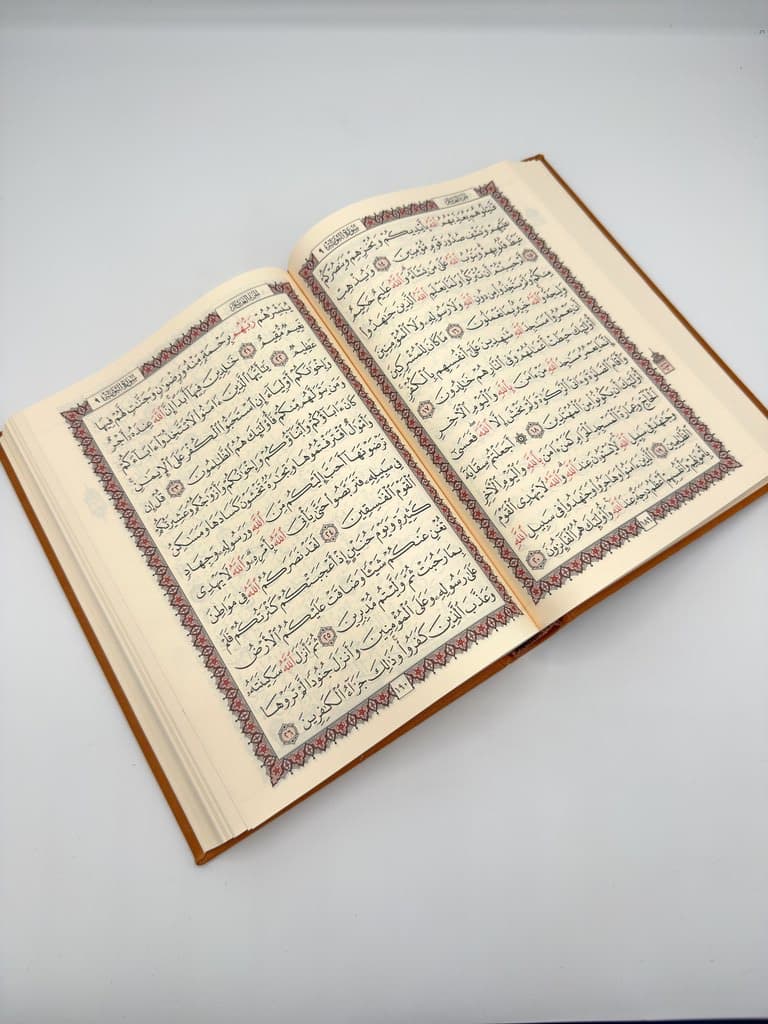 سُورَةُ التَّوْبَةِ ٩
الجُزْءُ العَاشِرُ
قَٰتِلُوهُمْ يُعَذِّبْهُمُ ٱللَّهُ بِأَيْدِيكُمْ وَيُخْزِهِمْ وَيَنصُرْكُمْ
عَلَيْهِمْ وَيَشْفِ صُدُورَ قَوْمٍ مُّؤْمِنِينَ ١٤ وَيُذْهِبْ
غَيْظَ قُلُوبِهِمْ وَيَتُوبُ ٱللَّهُ عَلَىٰ مَن يَشَآءُ وَٱللَّهُ عَلِيمٌ حَكِيمٌ
١٥ أَمْ حَسِبْتُمْ أَن تُتْرَكُوا۟ وَلَمَّا يَعْلَمِ ٱللَّهُ ٱلَّذِينَ جَٰهَدُوا۟
مِنكُمْ وَلَمْ يَتَّخِذُوا۟ مِن دُونِ ٱللَّهِ وَلَا رَسُولِهِۦ وَلَا ٱلْمُؤْمِنِينَ
وَلِيجَةً وَٱللَّهُ خَبِيرٌۢ بِمَا تَعْمَلُونَ ١٦ مَا كَانَ لِلْمُشْرِكِينَ
أَن يَعْمُرُوا۟ مَسَٰجِدَ ٱللَّهِ شَٰهِدِينَ عَلَىٰٓ أَنفُسِهِم بِٱلْكُفْرِ
أُو۟لَٰٓئِكَ حَبِطَتْ أَعْمَٰلُهُمْ وَفِى ٱلنَّارِ هُمْ خَٰلِدُونَ ١٧
إِنَّمَا يَعْمُرُ مَسَٰجِدَ ٱللَّهِ مَنْ ءَامَنَ بِٱللَّهِ وَٱلْيَوْمِ ٱلْءَاخِرِ
وَأَقَامَ ٱلصَّلَوٰةَ وَءَاتَى ٱلزَّكَوٰةَ وَلَمْ يَخْشَ إِلَّا ٱللَّهَ فَعَسَىٰٓ
أُو۟لَٰٓئِكَ أَن يَكُونُوا۟ مِنَ ٱلْمُهْتَدِينَ ١٨ ۞ أَجَعَلْتُمْ سِقَايَةَ
ٱلْحَآجِّ وَعِمَارَةَ ٱلْمَسْجِدِ ٱلْحَرَامِ كَمَنْ ءَامَنَ بِٱللَّهِ وَٱلْيَوْمِ ٱلْءَاخِرِ
وَجَٰهَدَ فِى سَبِيلِ ٱللَّهِ لَا يَسْتَوُۥنَ عِندَ ٱللَّهِ وَٱللَّهُ لَا يَهْدِى ٱلْقَوْمَ
ٱلظَّٰلِمِينَ ١٩ ٱلَّذِينَ ءَامَنُوا۟ وَهَاجَرُوا۟ وَجَٰهَدُوا۟ فِى سَبِيلِ ٱللَّهِ
بِأَمْوَٰلِهِمْ وَأَنفُسِهِمْ أَعْظَمُ دَرَجَةً عِندَ ٱللَّهِ وَأُو۟لَٰٓئِكَ هُمُ ٱلْفَآئِزُونَ ٢٠
١٨٩
الجُزْءُ العَاشِرُ
سُورَةُ التَّوْبَةِ ٩
يُبَشِّرُهُمْ رَبُّهُم بِرَحْمَةٍ مِّنْهُ وَرِضْوَٰنٍ وَجَنَّٰتٍ لَّهُمْ فِيهَا
نَعِيمٌ مُّقِيمٌ ٢١ خَٰلِدِينَ فِيهَآ أَبَدًا إِنَّ ٱللَّهَ عِندَهُۥٓ أَجْرٌ
عَظِيمٌ ٢٢ يَٰٓأَيُّهَا ٱلَّذِينَ ءَامَنُوا۟ لَا تَتَّخِذُوٓا۟ ءَابَآءَكُمْ
وَإِخْوَٰنَكُمْ أَوْلِيَآءَ إِنِ ٱسْتَحَبُّوا۟ ٱلْكُفْرَ عَلَى ٱلْإِيمَٰنِ
وَمَن يَتَوَلَّهُم مِّنكُمْ فَأُو۟لَٰٓئِكَ هُمُ ٱلظَّٰلِمُونَ ٢٣ قُلْ إِن
كَانَ ءَابَآؤُكُمْ وَأَبْنَآؤُكُمْ وَإِخْوَٰنُكُمْ وَأَزْوَٰجُكُمْ وَعَشِيرَتُكُمْ
وَأَمْوَٰلٌ ٱقْتَرَفْتُمُوهَا وَتِجَٰرَةٌ تَخْشَوْنَ كَسَادَهَا وَمَسَٰكِنُ
تَرْضَوْنَهَآ أَحَبَّ إِلَيْكُم مِّنَ ٱللَّهِ وَرَسُولِهِۦ وَجِهَادٍ
فِى سَبِيلِهِۦ فَتَرَبَّصُوا۟ حَتَّىٰ يَأْتِىَ ٱللَّهُ بِأَمْرِهِۦ وَٱللَّهُ لَا يَهْدِى
ٱلْقَوْمَ ٱلْفَٰسِقِينَ ٢٤ لَقَدْ نَصَرَكُمُ ٱللَّهُ فِى مَوَاطِنَ
كَثِيرَةٍ وَيَوْمَ حُنَيْنٍ إِذْ أَعْجَبَتْكُمْ كَثْرَتُكُمْ فَلَمْ
تُغْنِ عَنكُمْ شَيْـًٔا وَضَاقَتْ عَلَيْكُمُ ٱلْأَرْضُ
بِمَا رَحُبَتْ ثُمَّ وَلَّيْتُم مُّدْبِرِينَ ٢٥ ثُمَّ أَنزَلَ ٱللَّهُ سَكِينَتَهُۥ
عَلَىٰ رَسُولِهِۦ وَعَلَى ٱلْمُؤْمِنِينَ وَأَنزَلَ جُنُودًا لَّمْ تَرَوْهَا
وَعَذَّبَ ٱلَّذِينَ كَفَرُوا۟ وَذَٰلِكَ جَزَآءُ ٱلْكَٰفِرِينَ ٢٦
١٩٠